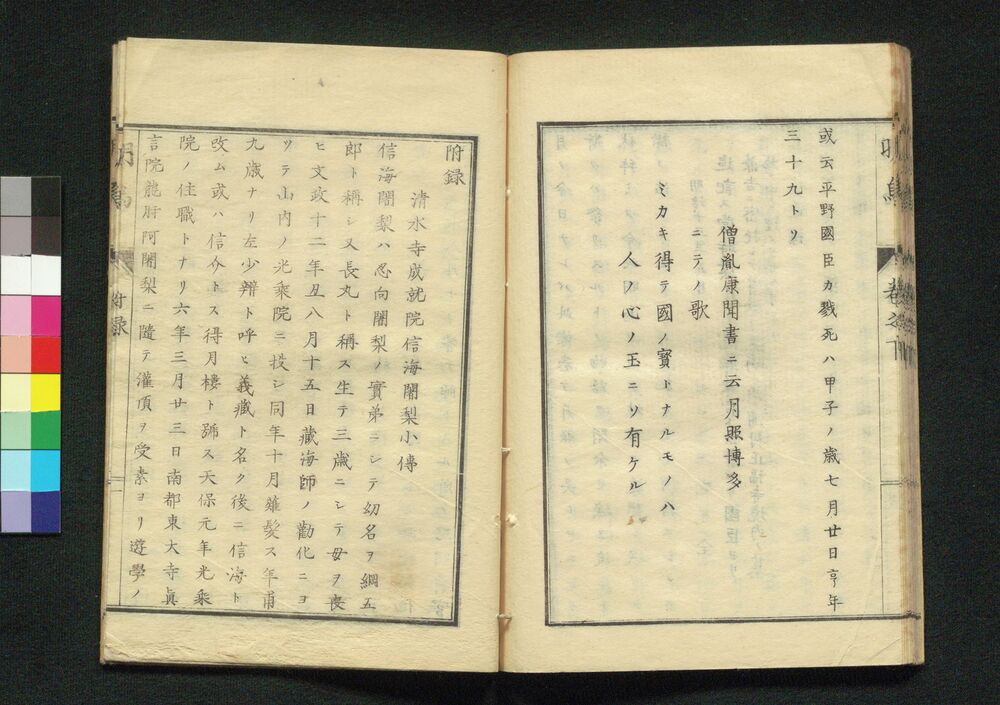 或云平野國臣カ戮死ハ甲子ノ歳七月廿日亨年
三十九トソ
僧胤康聞書ニ云月照博多
ニテノ歌
ミカキ得テ國ノ寳トナルモノハ
人ノ心ノ玉ニソ有ケル
卷之下
附録
清水寺成就院信海闍梨小傳
信海闍梨ハ忍向闍梨ノ實弟ニシテ幼名ヲ綱五
郎ト稱シ又長丸ト稱ス生テ三歳ニシテ母ヲ喪
ヒ文政十二年丑八月十五日藏海師ノ勸化ニヨ
ツテ山内ノ光乘院ニ投シ同年十月薙髮ス年甫
九歳ナリ左少辨ト呼ヒ義藏ト名ク後ニ信海ト
改ム或ハ信介トス得月樓ト號ス天保元年光乘
院ノ住職トナリ六年三月廿三日南都東大寺眞
言院龍肝阿闍梨ニ隨テ灌頂ヲ受素ヨリ遊學ノ
附録